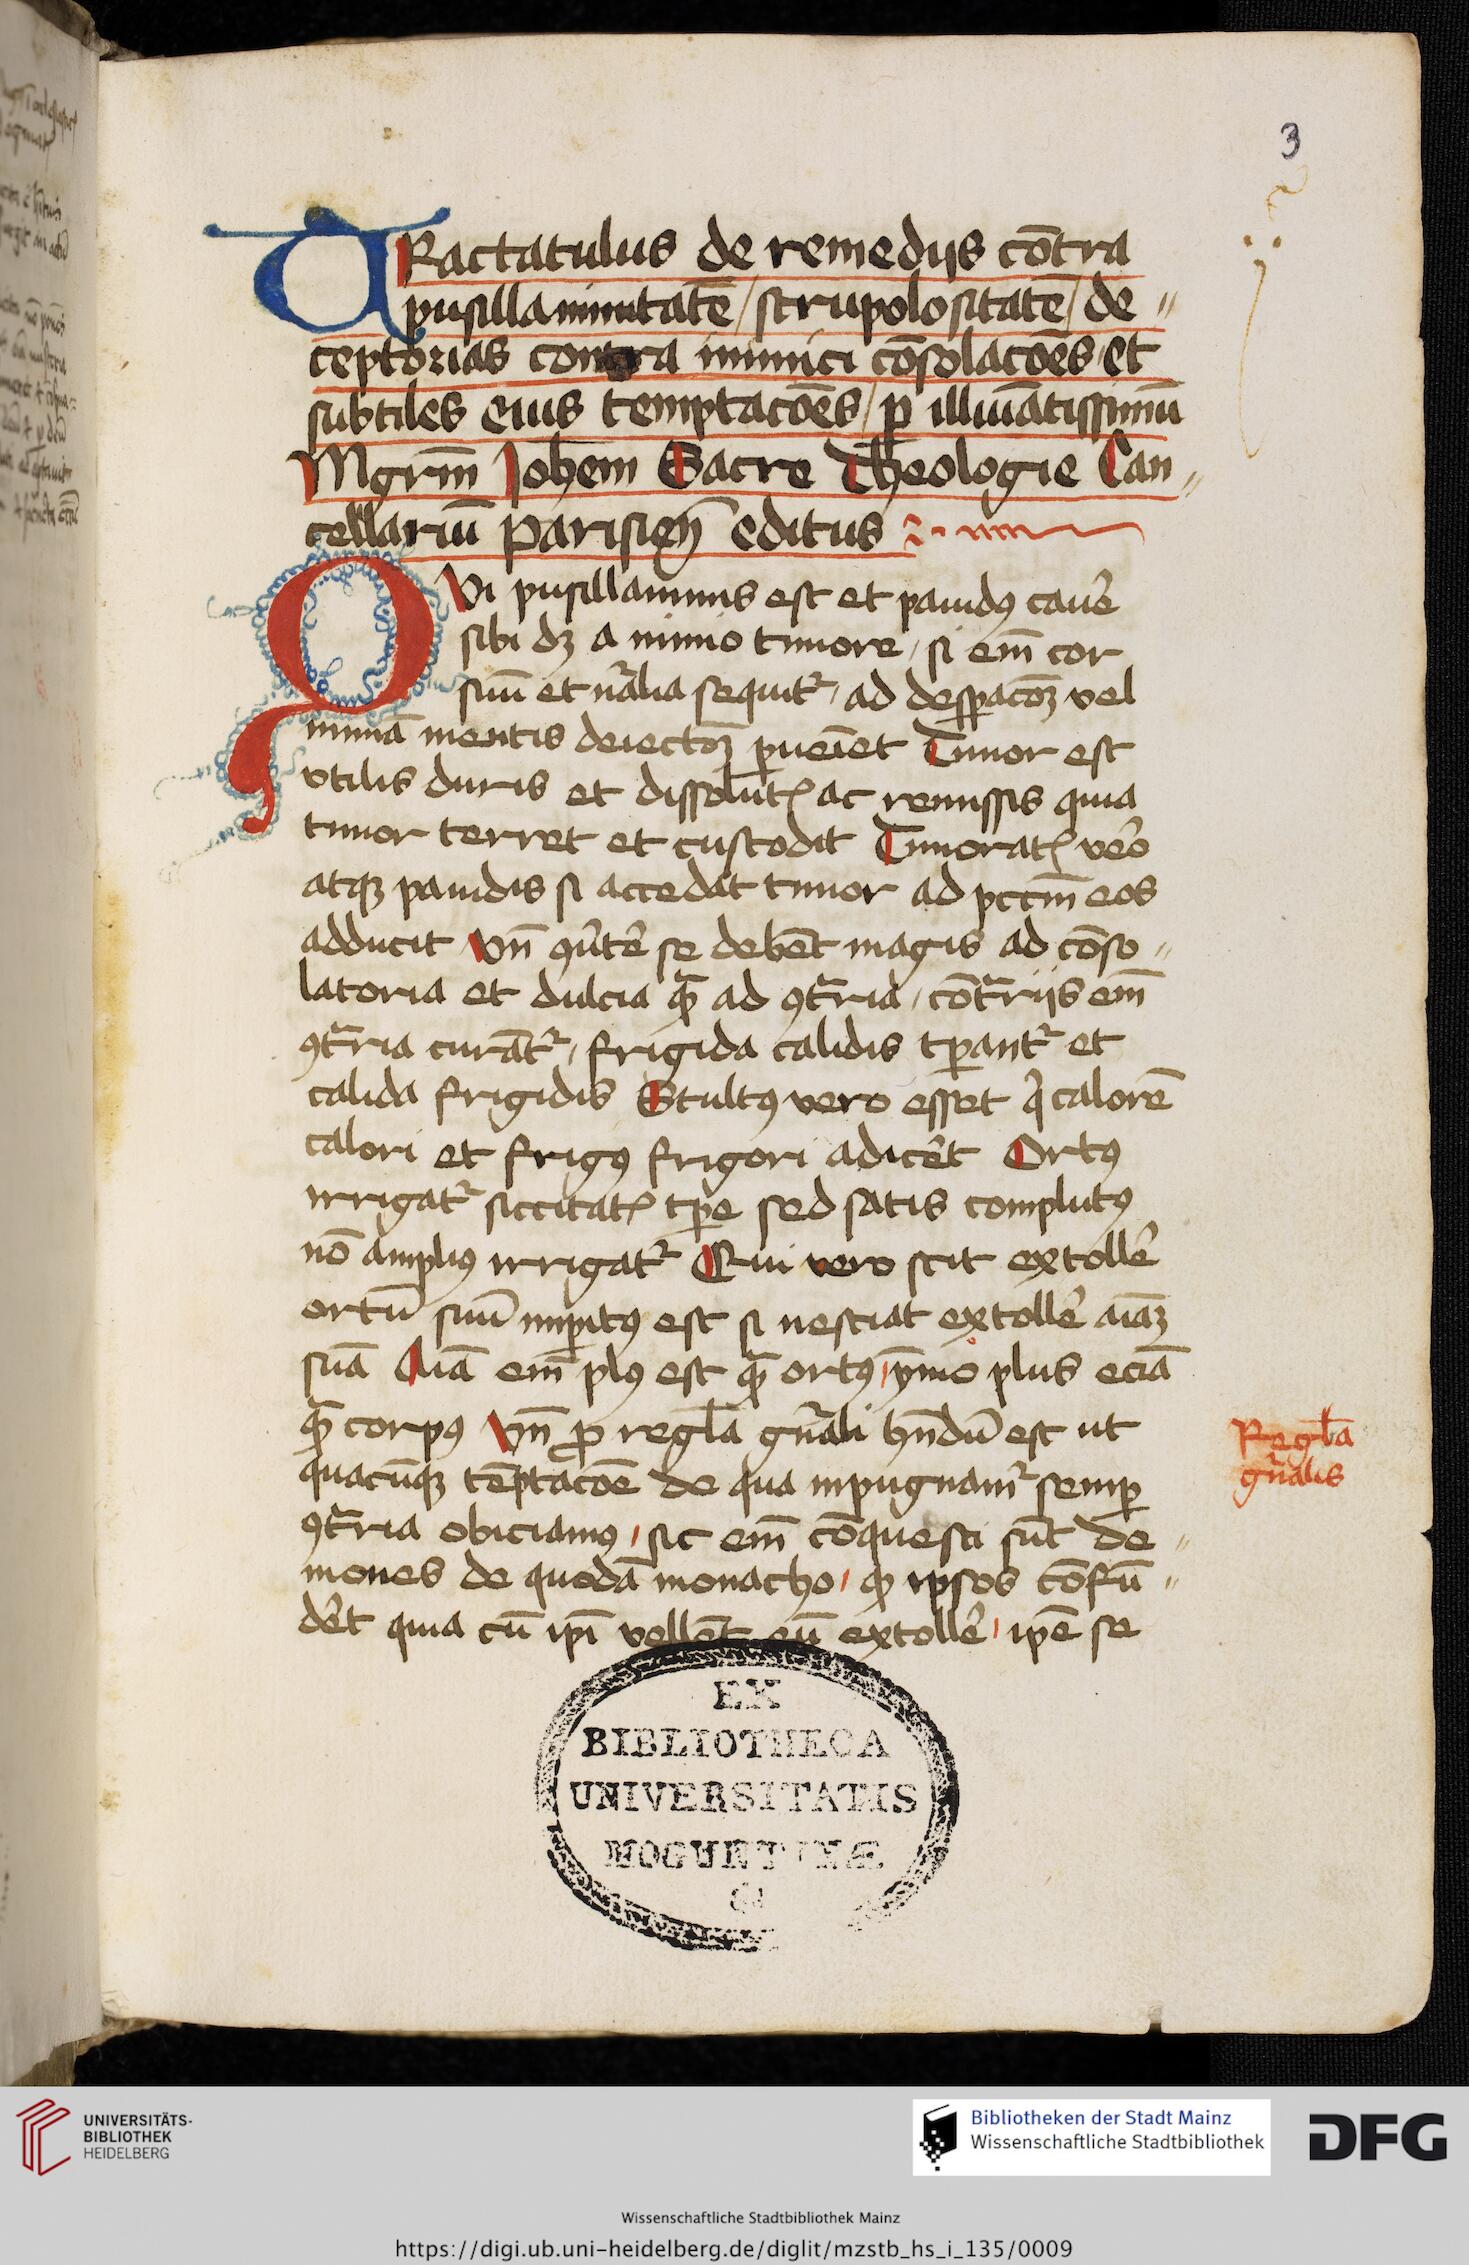 3
TRactatulus de remedijs cōtra
pusillanimitatē / scrupolositatē / de〃
ceptorias contra inimici cōsolacōes et
subtiles eius temptacōes / ꝑ illuīatissimū
Mgrm̄ Joh̄em Sacre Theologie Can〃
cellariū Parisien̄ editus
QVi pusillanimis est et pauidꝰ cauē
sibi dꝫ a nimio timore / si em̄ cor
suū et nr̄alia sequitr̄ / ad desꝑacōꝫ vel
nimiā mentis deiectōꝫ ꝑueīet Timor est
vtilis duris et dissolutꝭ ac remissis quia
timor terret et custodit Timoratꝭ vēo
atqꝫ pauidis si accedat timor ad pctm̄ eos
adducit Vn̄ ꝯūtē se debēt magis ad cōso〃
latoria et dulcia qͣ̄ ad ꝯtͣria / cōtͣrijs em̄
ꝯtͣria curātr̄ / frigida calidis tꝑantr̄ et
calida frigidis Stultꝰ vero esset qͥ calorē
calori et frigꝰ frigori adicēt Ortꝰ
irrigatr̄ siccitatꝭ tp̄e sed satis complutꝰ
nō ampliꝰ irrigatr̄ Qui vero scit extollē
ortū suū imꝑitꝰ est si nesciat extollē aīaꝫ
suā Aīa em̄ plꝰ est qͣ̄ ortꝰ / ymo plus eciā
qͣ̄ corpꝰ Vn̄ ꝓ regl̄a gn̄ali hn̄dū est ut
quacūqꝫ tēptacōe de qua inpugnamr̄ semꝑ
ꝯtͣria obiciamꝰ / sic em̄ cōquesti sūt de〃
mones de quodā monacho / ꝙ ipsos cōfū〃
dēt quia cū ip̄i vellēt eū extollē / ip̄e se
Regl̄a
gn̄alis
EX
BIBLIOTHECA
UNIVERSITATIS
MOGUNTINÆ
UNIVERSITÄTS-
BIBLIOTHEK
HEIDELBERG
Bibliotheken der Stadt Mainz
Wissenschaftliche Stadtbibliothek
DFG
Wissenschaftliche Stadtbibliothek Mainz
https://digi.ub.uni-heidelberg.de/diglit/mzstb_hs_i_135/0009